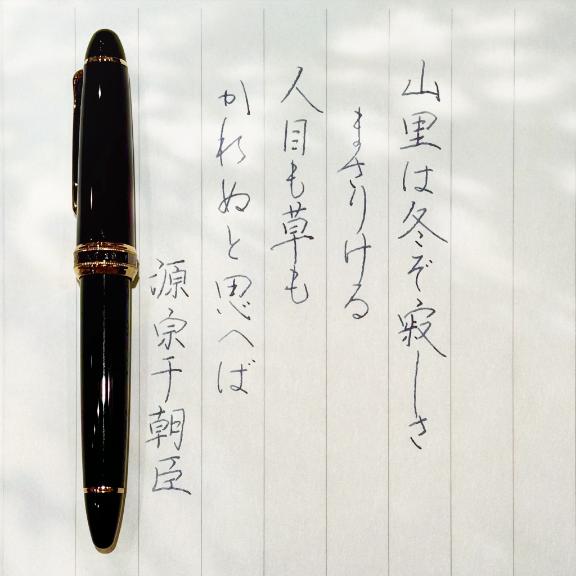 山里は冬ぞ寂しさ
まさりける
人目も草も
かれぬと思へば
源宗于朝臣